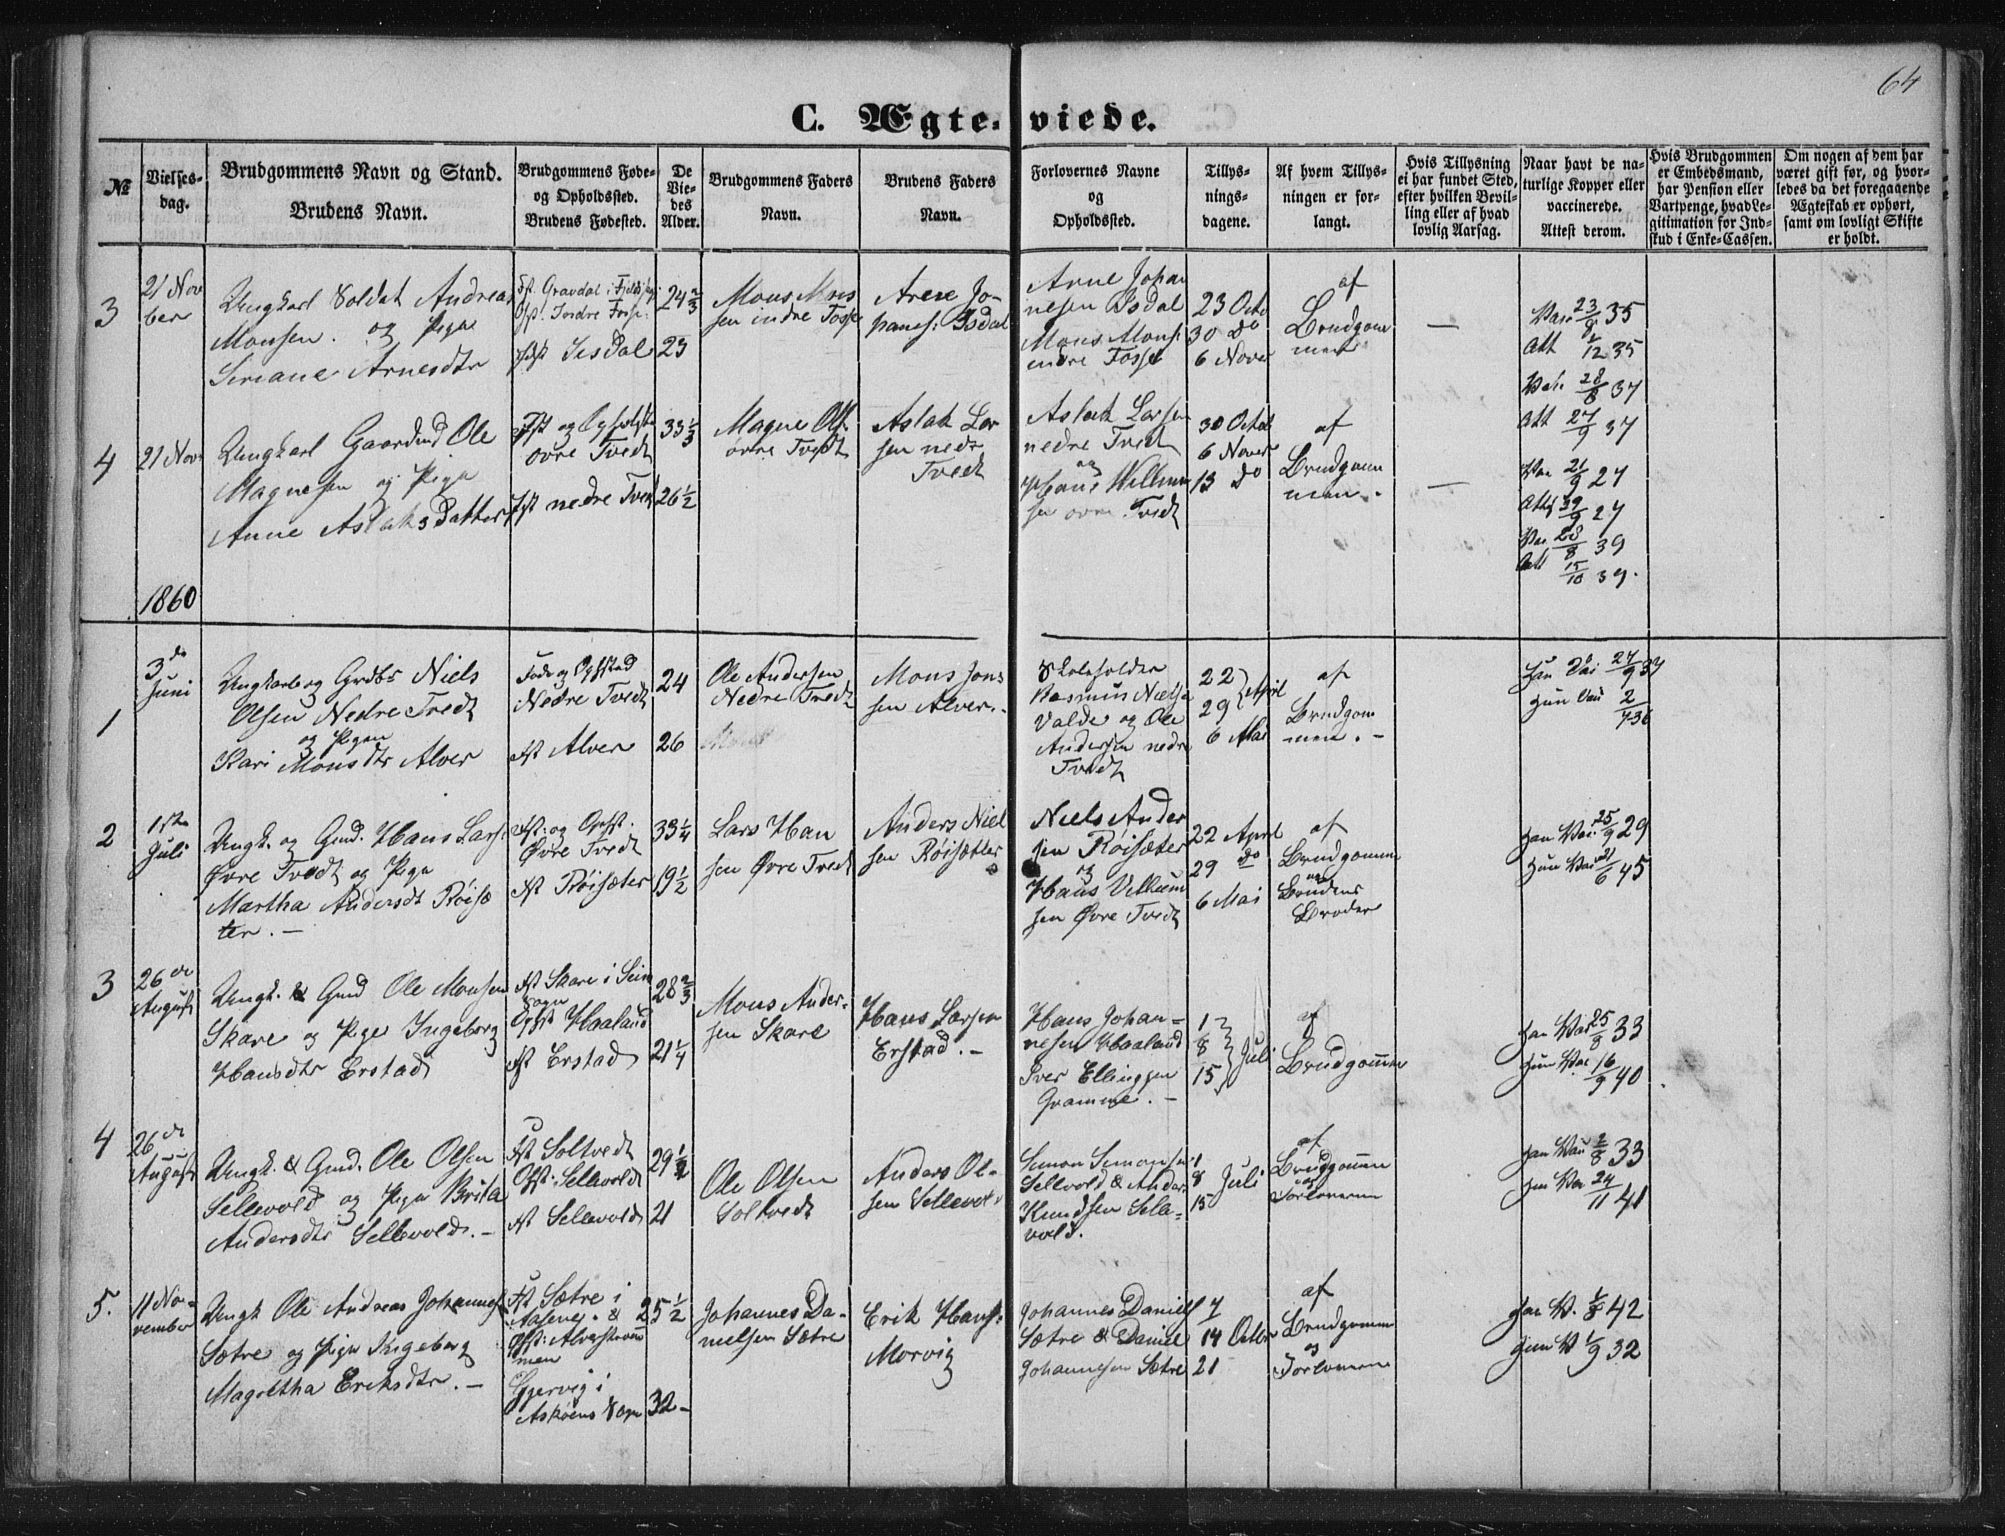 64
C. Ægte-viede.
№
Vielses-
dag.
Brudgommens Navn og Stand.
Brudens Navn.
Brudgommens Føde-
og Opholdssted.
Brudens Fødested.
De
Vie-
des
Alder.
Brudgommens Faders
Navn.
Brudens Faders
Navn.
Forlovernes Navne
og
Opholdssted.
Tillys-
nings-
dagene.
Af hvem Tillys-
ningen er for-
langt.
Hvis Tillysning
ei har fundet Sted,
efter hvilken Bevil-
ling eller af hvad
lovlig Aarsag.
Naar havt de na-
turlige Kopper eller
vaccinerede.
Attest derom.
Hvis Brudgommen
er Embedsmand,
har Pension eller
Vartpenge, hvad Le-
gitimation for Ind-
skud i Enke-Cassen.
Om nogen af dem har
været gift før, og hvor-
ledes da det foregaaende
Ægteskab er ophørt,
samt om lovligt Skifte
er holdt.
3
21 Nov
ber
Ungkarl Soldat Andreas
Monsen. og Pige
Siriane Arnesdtr
Gravdal i
Indre Fosse
Isdal
24 2/3
23
Mons Mon
sen indre Fosse
Arne Jo-
hanes: Isdal
Arne Johan
nesen Isdal
Mons Mons:
indre Fosse
23 Octo
30 do
6 Nover
af
Brudgom
men
—
Vac 23/8 35
Att 1/12 35
Vac. 28/8 37
Att 27/9 37
4
21 Nov
Ungkarl Gaardmd Ole
Magnesen og Pige
Anne Aslaks Datter
Fst og Opholdst
øvre Tvedt
Fst nedre Tvedt
33 1/3
26 1/2
Magne Ols
øvre Tvedt
Aslak Lar
sen nedr
Tvedt
Aslak Larsen
nedre Tvedt
og
Hans Willum
sen øvre Tvedt
30 Octob
6 Nover
13 do
af
Brudgom
men.
—
Vac 21/9 27
Vac 28/8 39
Att 15/10 39.
1860
1
3 de
Juni
Ungkarl og Grdbr Niels
Olsen Nedre Tvedt
og Pigen
Kari Monsdtr Alver
Føde og Ophstad
Nedre Tvedt
Fst Alver
24
26
Ole Andersen
Nedre Tvedt
Mons Jons
sen Alver.
Skoleholder
Rasmus Nielse
Valde og Ole
Andersen nedre
Tvedt
22
29 April
6 Mai
af
Brudgom
men. -
Han Vac 27/9 37
Hun Vac 2/7 36
2
1ste
Juli
Ungk. og Gmd. Hans Lars:
Øvre Tvedt og Pige
Martha Andersdt Røisæ
ter. —
Fst: og Opst.
Øvre Tvedt
Fst Røisæter
33 1/4
19 1/2
Lars Han
sen Øvre Tvedt
Anders Niel
sen Røisætter
Niels Ander
sen Røisæter
og
Hans Vellum
sen Øvre Tvedt
22 April
29 do
6 Mai
af
Brudgomm
og
Brudens
Broder
Han Vac 25/9 29
Hun Vac 6 45
3
26 de
August
Ungk. & Gmd Ole Monsen
Skare og Pige Ingeborg
Hansdtr Erstad
Fst Skare i Seim
Sogn
Opst Haaland
Fst Erstad
28 2/3
21 1/4
Mons Ander-
sen Skare
Hans Larsen
Erstad. —
Hans Johan-
nesen Haaland
Iver Ellingsen
Gramme. —
1
8 Juli
15
af
Brudgommen
Han Vac 25/8 33
Hun Vac 16/9 40
4
26 de
August
Ungk. & Gmd. Ole Olsen
Sellevold og Pige Brita
Andersdtr Sellevold. —
Fst Soltvedt
Opst. Sellevold
Fst Sellevold
29 1/2
21
Ole Olsen
Soltvedt
Anders Ol-
sen Sellevold
Simon Simonsen
Sellevold & Anders
Knudsen Selle-
vold.
1
8 Juli
15
af
Brudgommen
og
Forloverne
Han Vac 2/8 33
Hun Vac 24/11 41
5.
11 No-
vember
Ungk Ole Andreas Johannes
Sætre og Pige Ingeborg
Magretha Eriksdtr. —
Fst Sætre i
&
Opst: Alverstrøm
men
Gjervig i
Askøens Sogn
25 1/2
32 -
Johannes Da-
nielsen Sætre
Erik Hans:
Morvig
Johannes Daniels
Sætre & Daniel
Johannesen Sætre
7
14 Octbr
21
af
Brudgomm
og
Forloverne
Han V. 1/8 42
Hun V 1/9 32